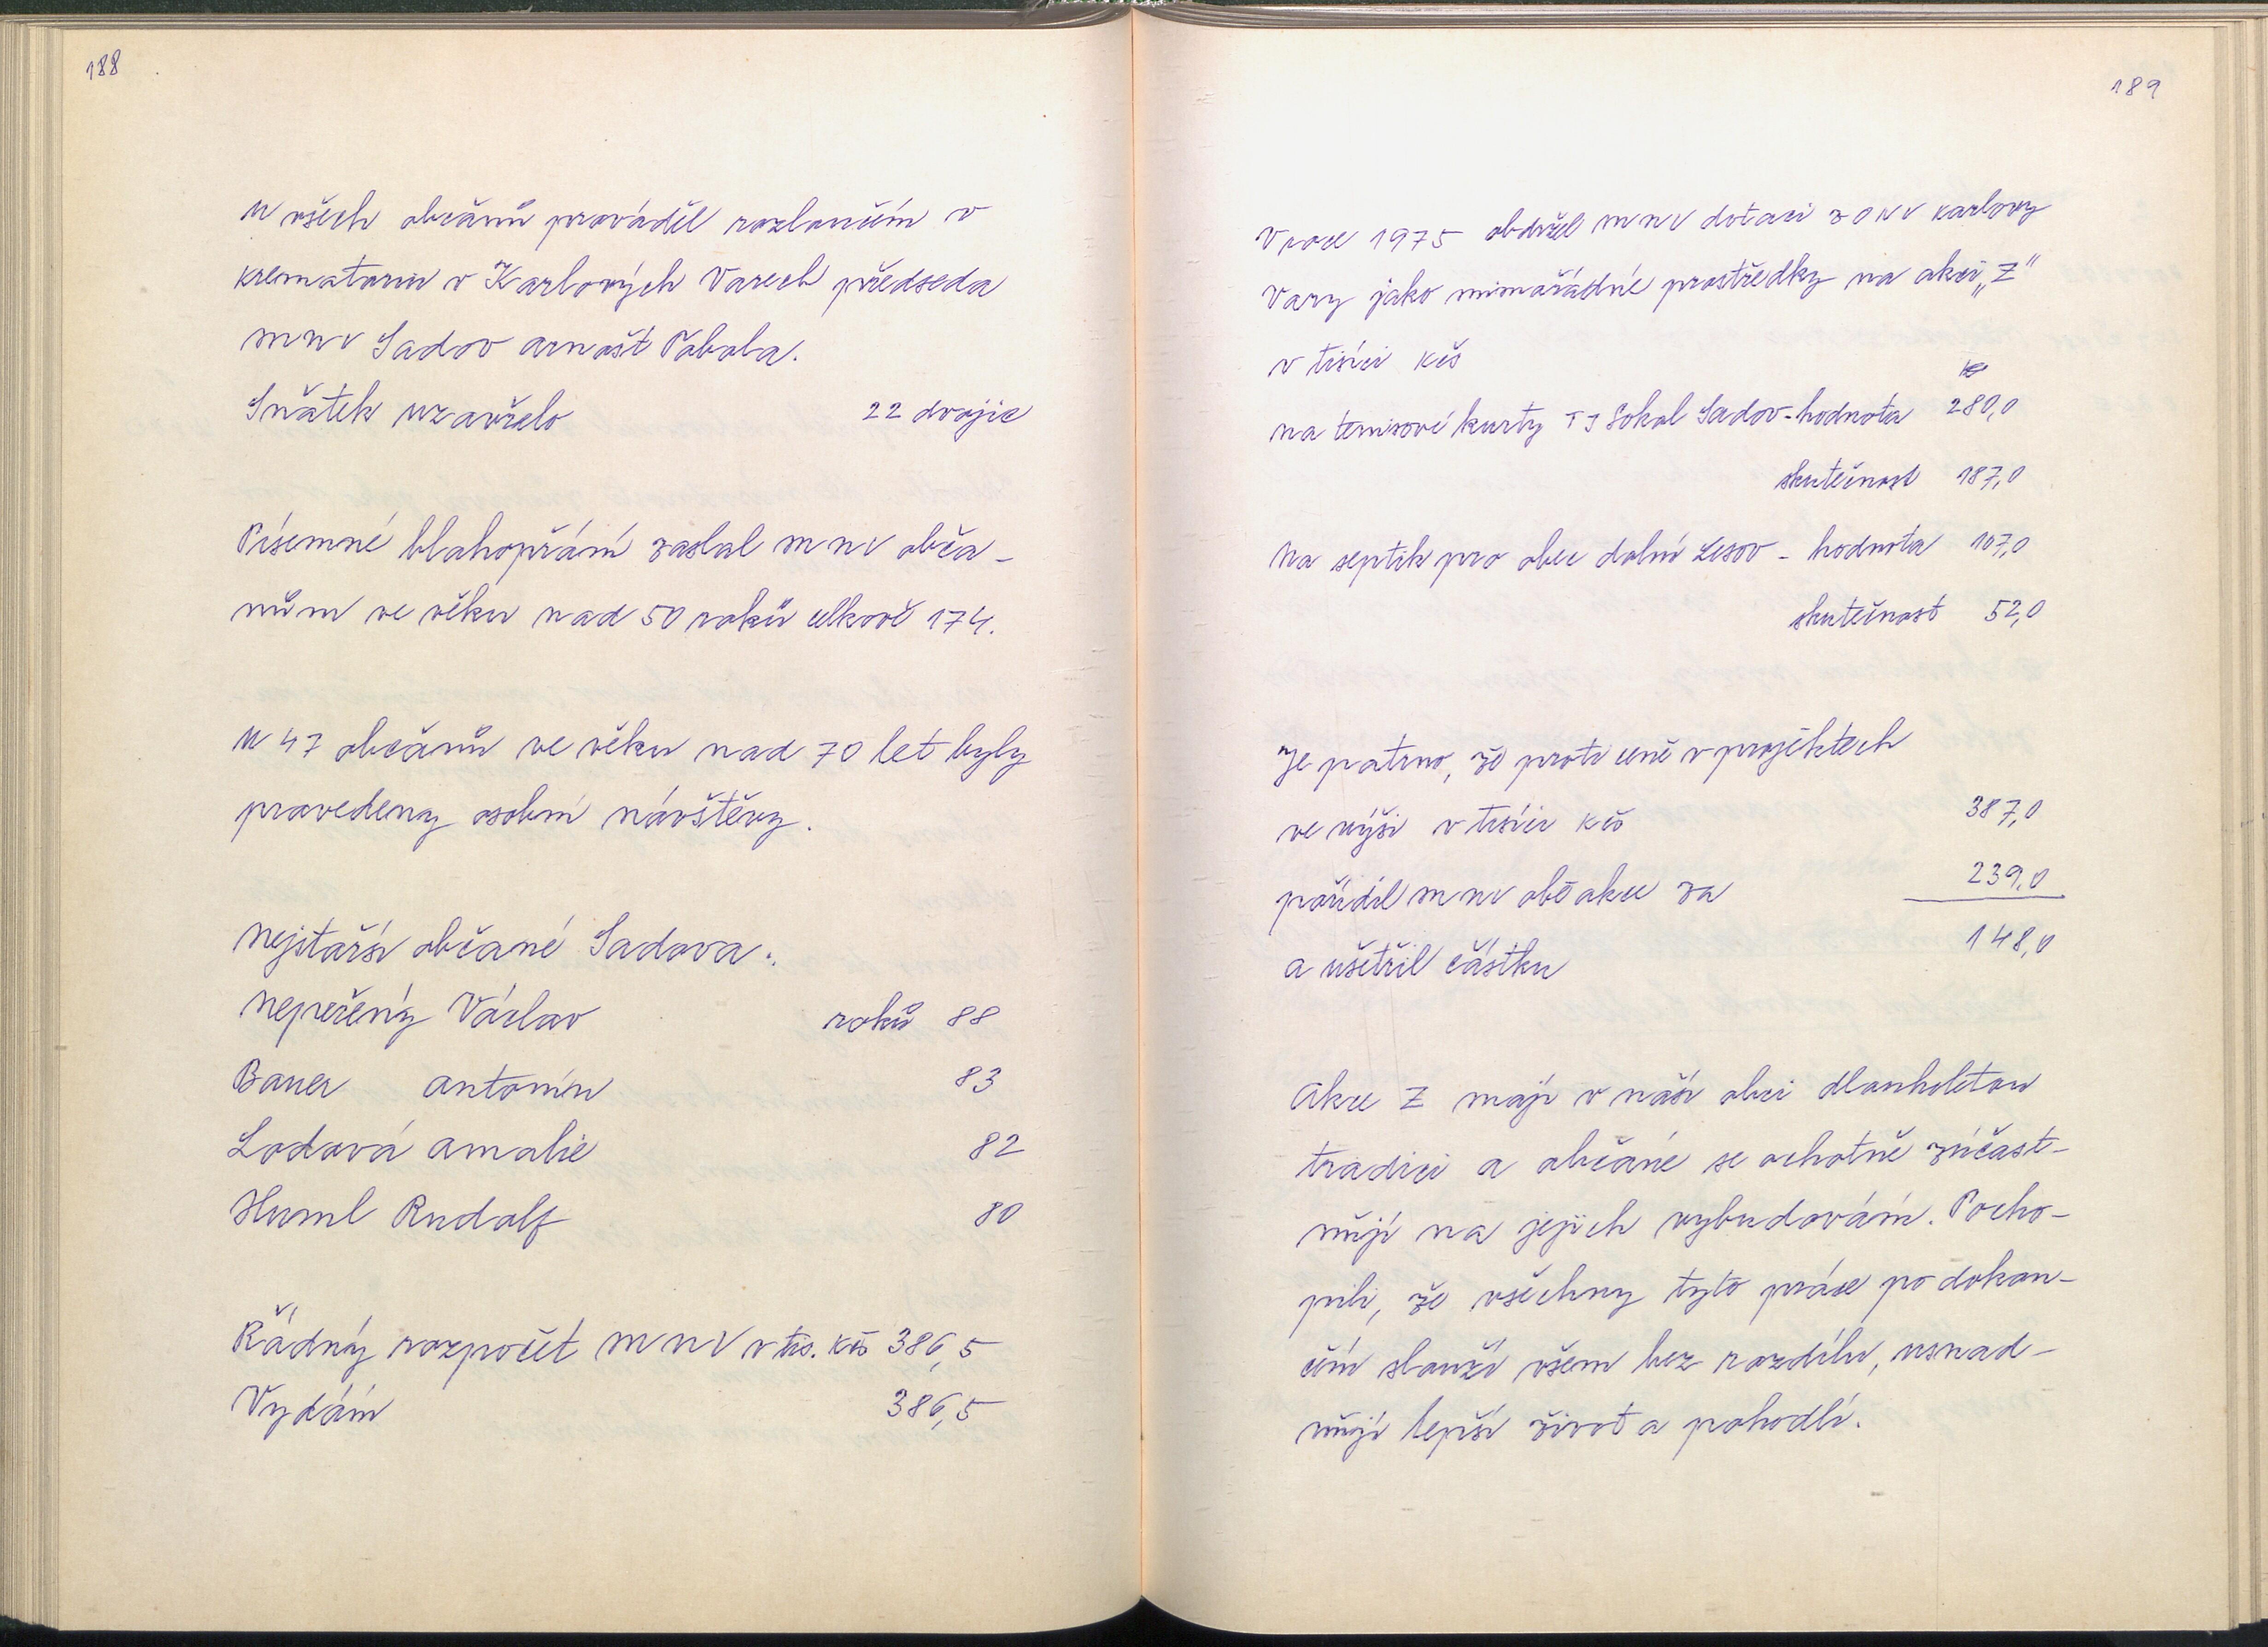 188
U všech občanů prováděl rozloučím v
krematoriu v Karlových Varech předseda
MNV Sadov Arnošt Pobola.
Sňatek uzavřelo 22 dvojic
Písemné blahopřání zaslal MNV obča-
nům ve věku nad 50 roků celkově 174.
U 47 občanů ve věku nad 70 let byly
provedeny osobní návštěvy.
Nejstarší občané Sadova:
Nepeřený Václav roků 88
Bauer Antonín 83
Lodová Amalie 82
Huml Rudolf 80
Řádný rozpočet MNV v tis. Kčs 386,5
Vydání 386,5
189
V roce 1975 obdržel MNV dotaci z ONV Karlovy
Vary jako mimořádné prostředky na akci „Z"
v tisíci Kčs
na tenisové kurty TJ Sokol Sadov - hodnota 280,0
skutečnost 187,0
Na septik pro obec dolní Lesov - hodnota 107,0
skutečnost 52,0
Je patrno, že proti ceně v projektech
ve výši v tisíci Kčs 387,0
pořídil MNV obě akce za 239,0
a ušetřil částku 148,0
Akce Z mají v naší obci dlouholetou
tradici a občané se ochotně zúčast-
ňují na jejich vybudování. Pocho-
pili, že všechny tyto práce po dokon-
čení slouží všem bez rozdílu, usnad-
ňují lepší život a pohodlí.